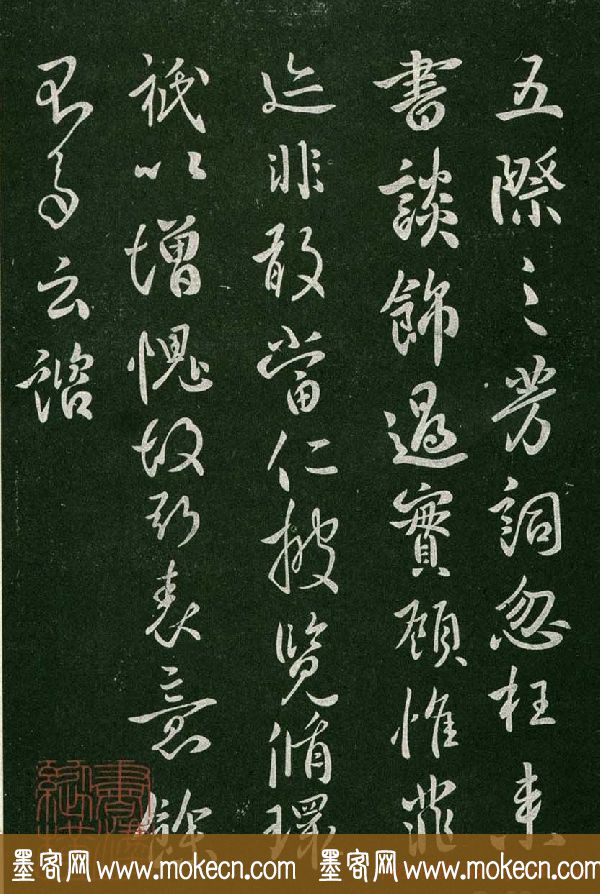 五際之芳詞忽枉来
書談飾過實顧惟菲
迹非敢當仁披覽循環
祇以增愧故表意
云諮
墨客网www.mokecn.com 墨客网www.mokecn.com